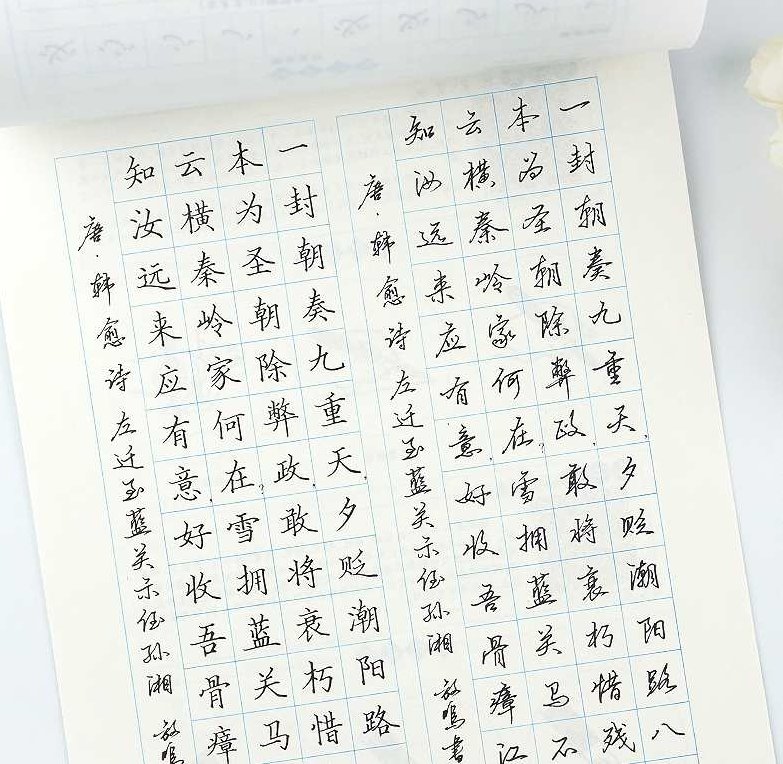 一封朝奏九重天,夕贬潮阳路八
本为圣朝除弊政,敢将衰朽惜残
云横秦岭家何在?雪拥蓝关马不
知汝远来应有意,好收吾骨瘴江
唐·韩愈诗左迁至蓝关示侄孙湘 鸣书
一封朝奏九重天,夕贬潮阳路
本为圣朝除弊政,敢将衰朽惜
云横秦岭家何在?雪拥蓝关马
知汝远来应有意,好收吾骨瘴
唐·韩愈诗左迁至蓝关示侄孙湘 鸣